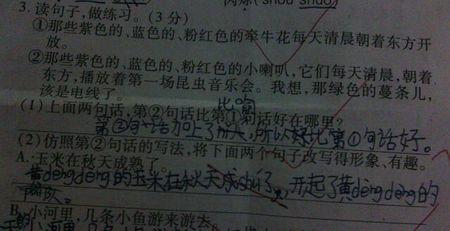 两烁(shou shuò)
3. 读句子,做练习。(3 分)
①那些紫色的、蓝色的、粉红色的牵牛花每天清晨朝着东方开
放。
②那些紫色的、蓝色的、粉红色的小喇叭,它们每天清晨,朝着
东方,播放着第一场昆虫音乐会。我想,那绿色的蔓条儿,
该是电线了。
(1)上面两句话,第②句话比第①句话好在哪里?
比喻
第②句话加上了 所以好比第①句话好。
(2)仿照第②句话的写法,将下面两个句子改写得形象、有趣。
A. 玉米在秋天成熟了。
黄dēngdēng的玉米在秋天成 了,开起了黄dēngdēng的
队。
B. 小河里,几条小鱼游来游去。